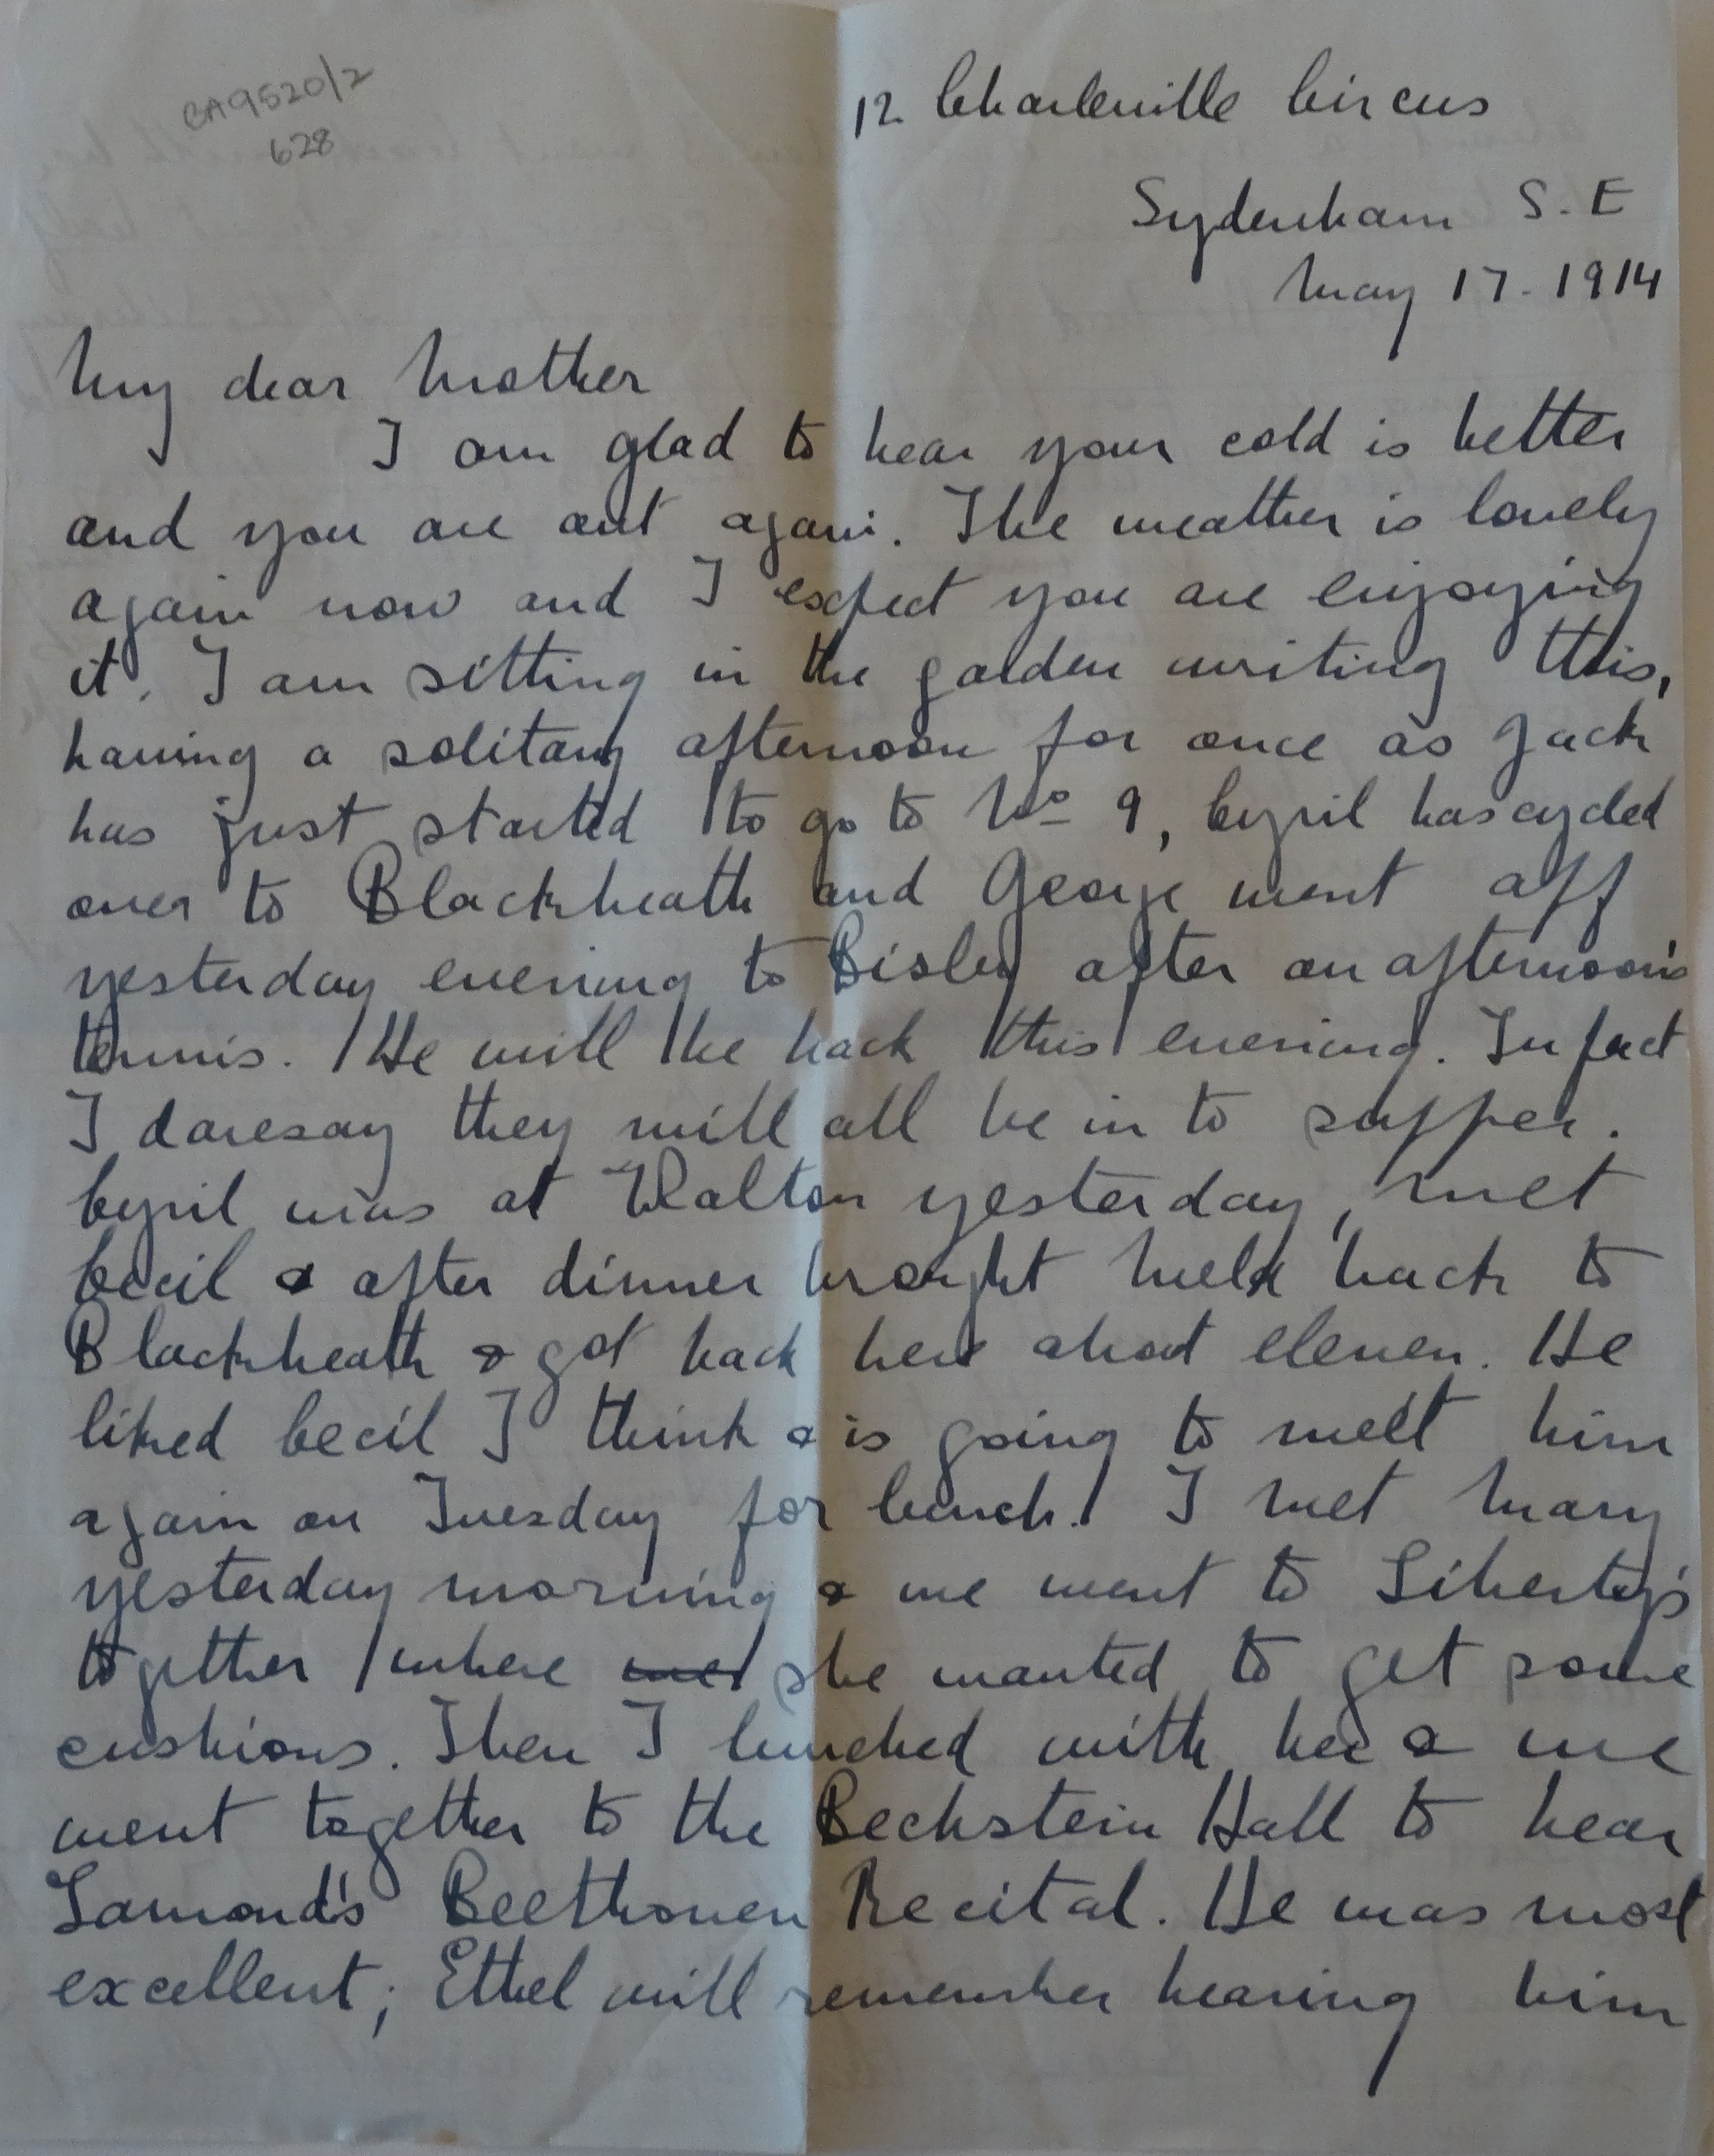 CA9520/2
628
12 Charleville Circus
Sydenham S. E
May 17. 1914
My dear Mother
I am glad to hear your cold is better
and you are out again. The weather is lovely
again now and I expect you are enjoying
it. I am sitting in the garden writing this,
having a solitary afternoon for once as Jack
has just started to go to No 9, Cyril has cycled
over to Blackheath and George went off
yesterday evening to Bisley after an afternoon's
tennis. He will be back this evening. In fact
I daresay they will all be in to supper.
Cyril was at Walton yesterday, met
Cecil & after dinner brought back to
Blackheath & got back here about eleven. He
liked Cecil I think & is going to meet him
again on Tuesday for lunch. I met Mary
yesterday morning & we went to Liberty's
together where she wanted to get some
cushions. Then I lunched with her & we
went together to the Bechstein Hall to hear
Lamond's Beethoven Recital. He was most
excellent; Ethel will remember hearing him